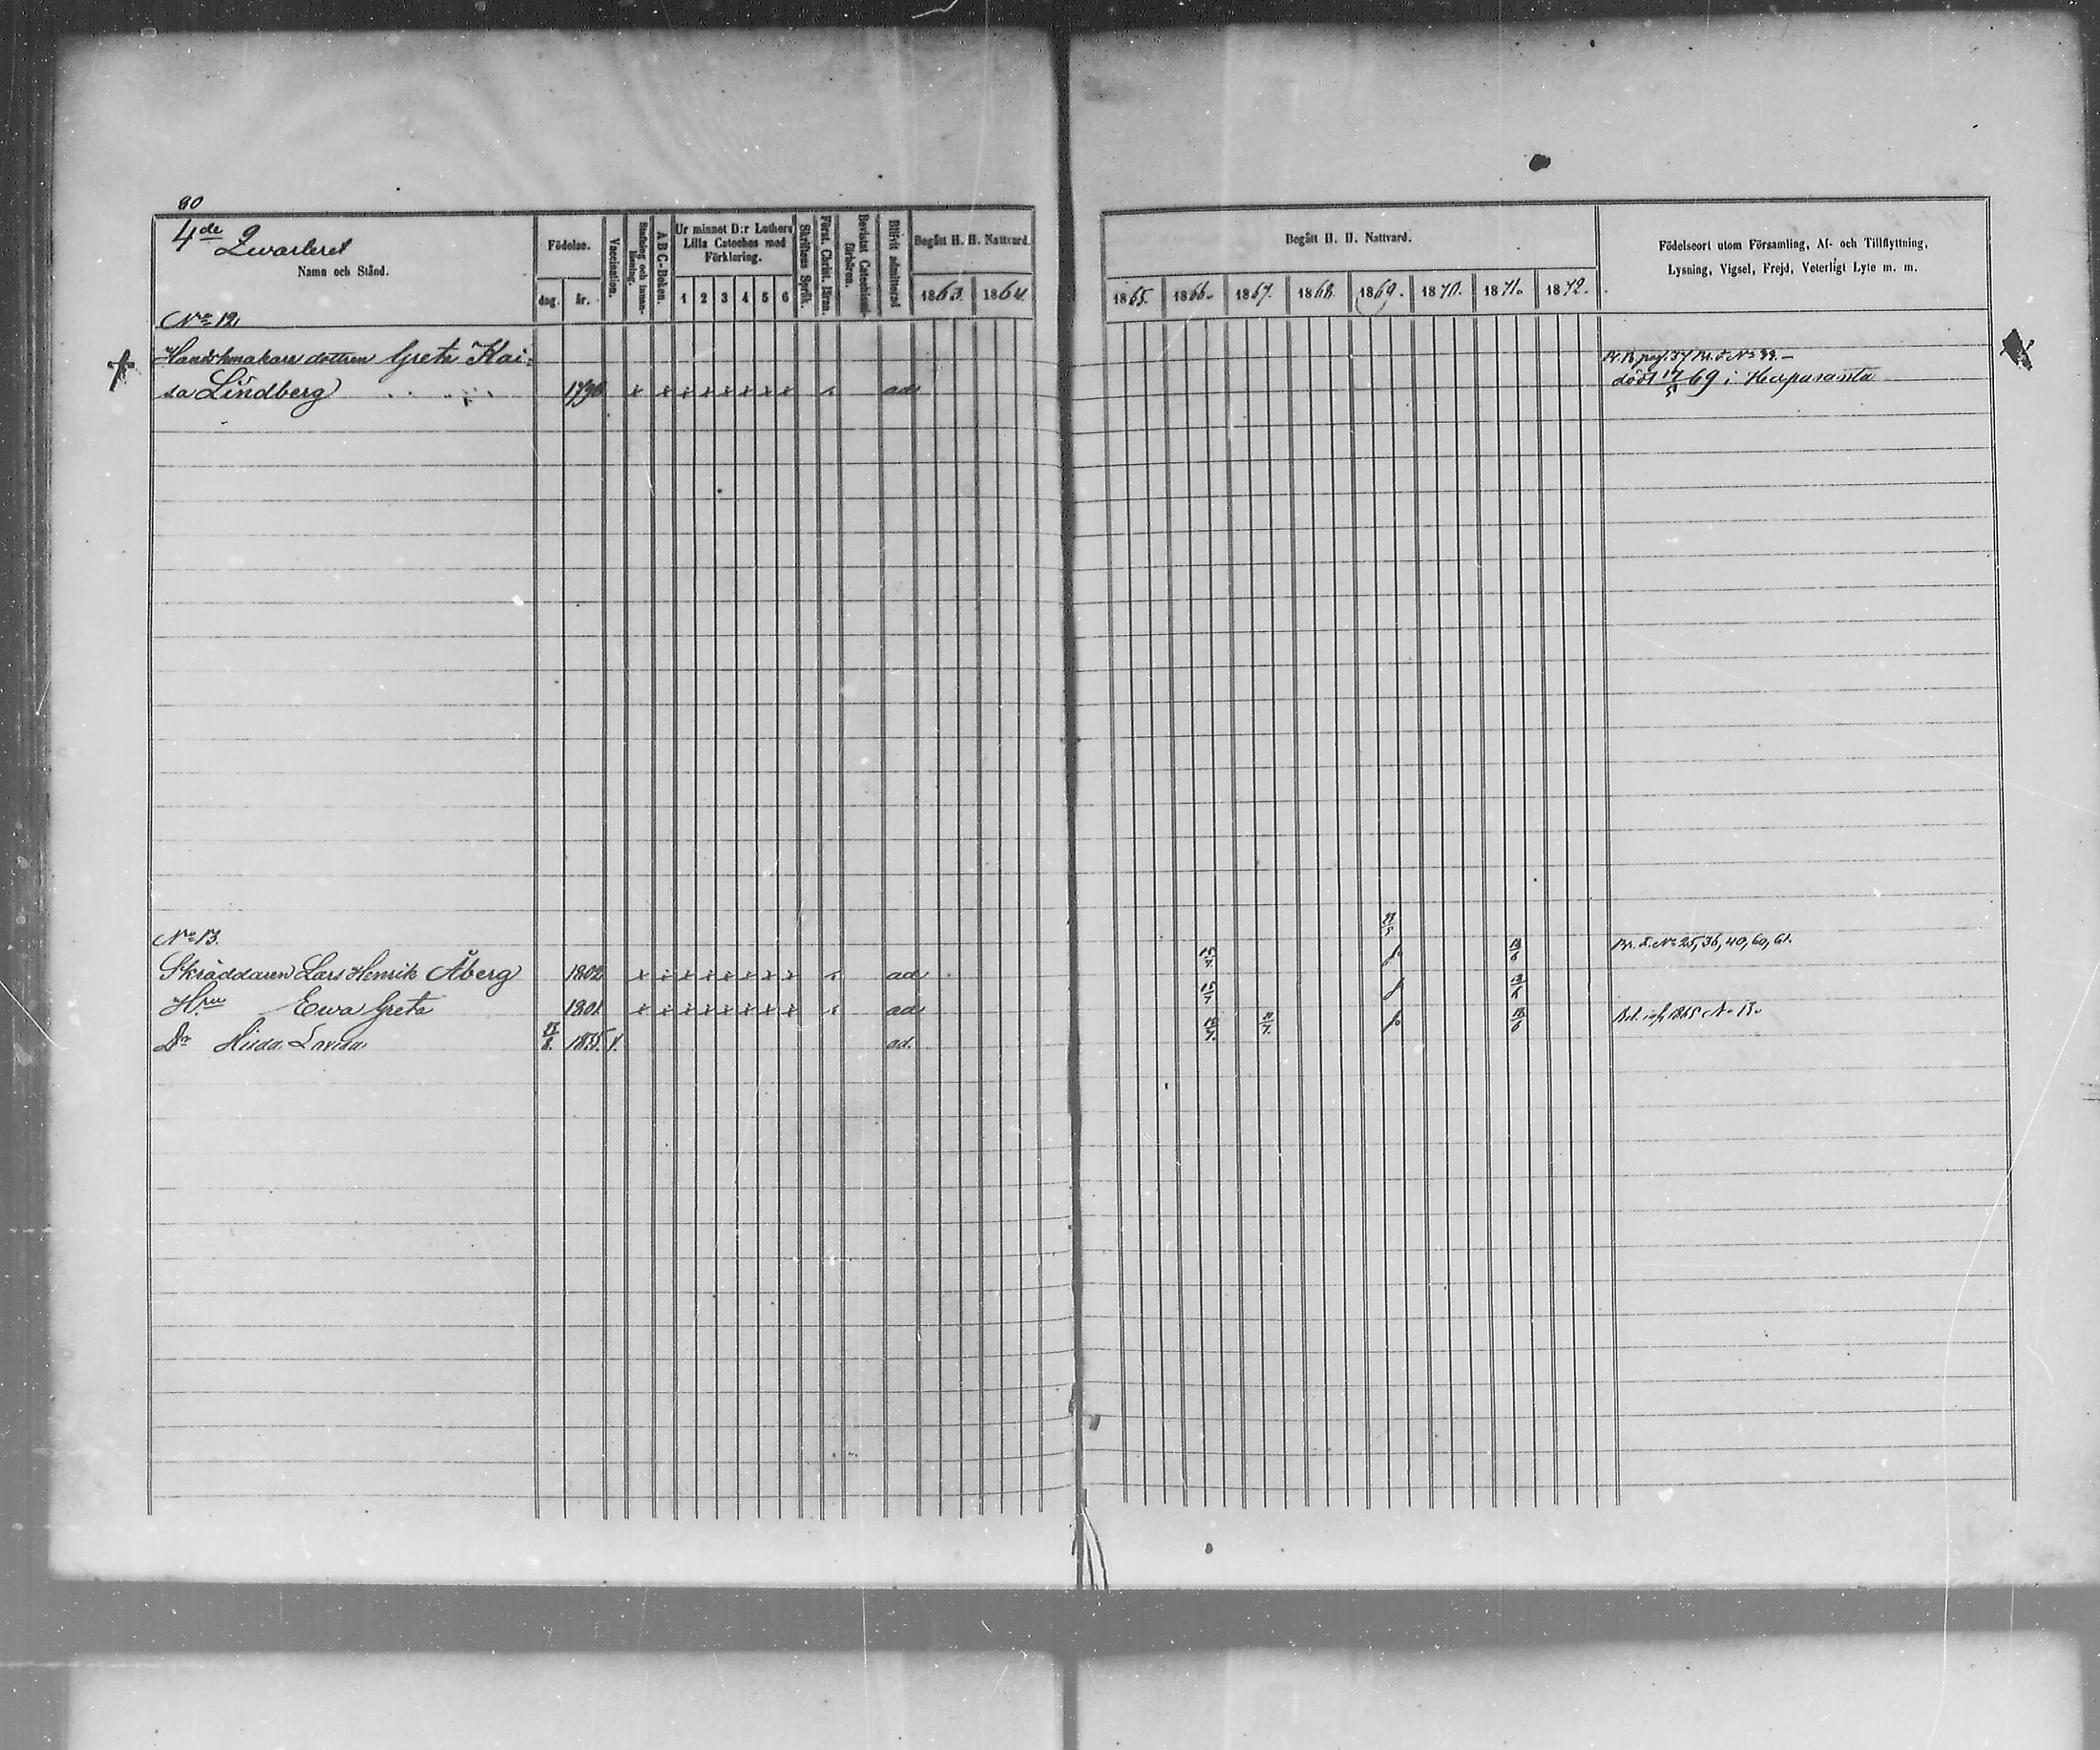 80
4de Qvarteret
Namn och Stånd.
Födelse.
dag.
år.
Vaccination.
Stafning och innan-läsning.
A B C-Boken.
Ur minnet D:r Luthers
Lilla Cateches med
Förklaring.
1 2 3 4 5 6
Skriftens Språk.
Först. Christ. läran.
Bevistat Catechismi-förhören.
Blifvit admitterad
Begått H. H. Nattvard.
1863. 1864.
Begått H. H. Nattvard.
1865. 1866. 1867. 1868. 1869. 1870. 1871. 1872.
Födelseort utom Församling, Af- och Tillflyttning,
Lysning, Vigsel, Frejd, Veterligt Lyte m. m.
No 12
Handskmakare dottren Greta Kai-
sa Lindberg 1790 x x x x x x x x x ad död 17/5 69 i Haparanda
No 13. 15/7 13/6 No 25, 36, 40, 60, 61.
Skräddaren Lars Henrik Åberg 1802 x x x x x x x x x ad 15/7 13/6
Hru Ewa Greta 1801 x x x x x x x x x ad 15/7 13/6 1865 No 13.
Dr Lovisa 1855. v. ad.